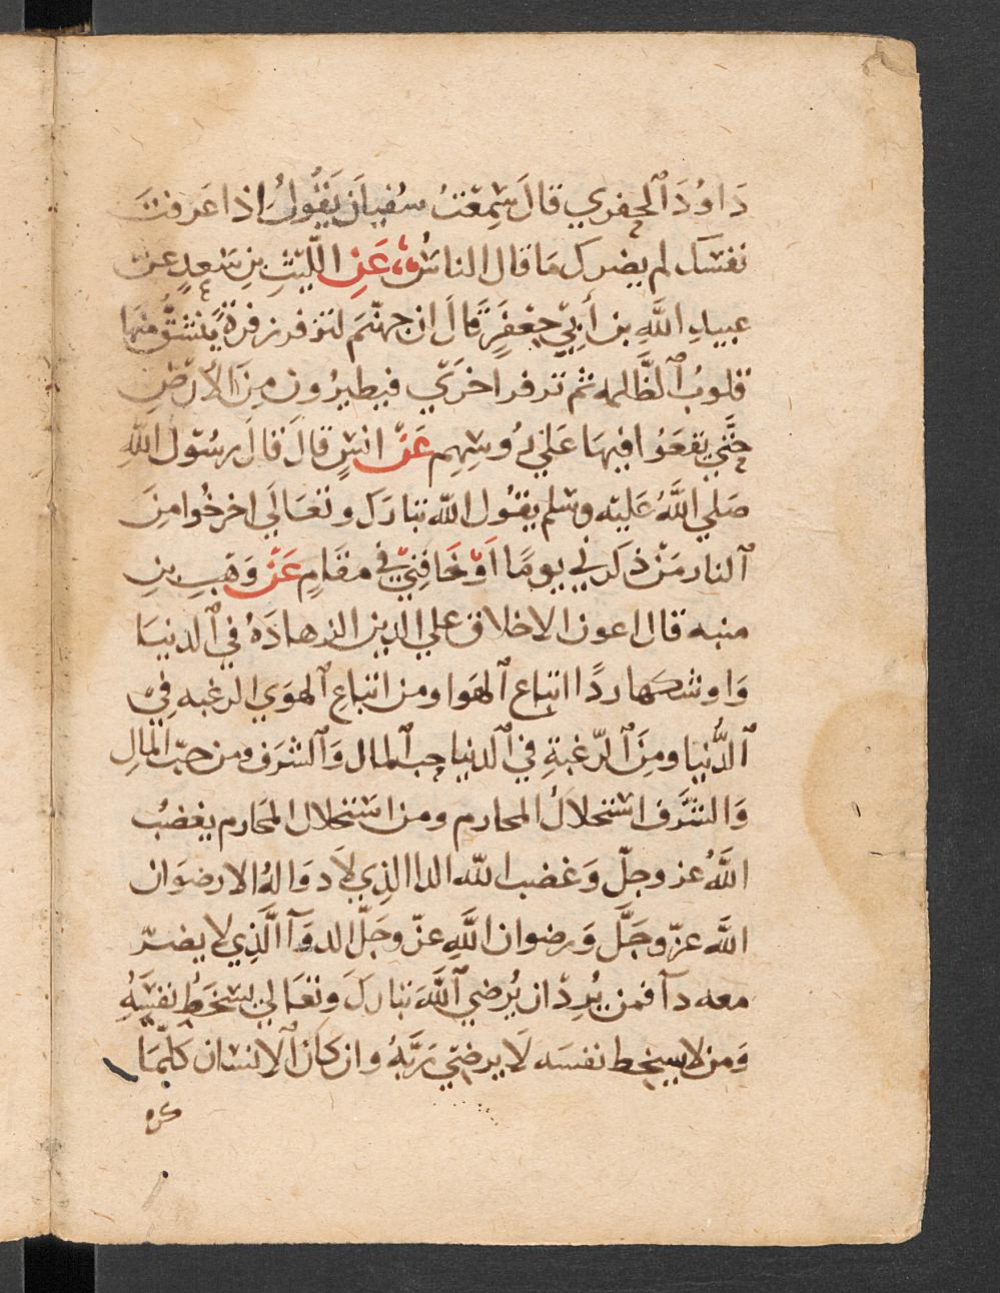 دَاوُدَ ٱلحفري قالَ سَمِعْتُ سُفيانَ يَقُولُ إذا عَرفتَ
نفسَك لم يضرك مَا قال الناسُ عَنِ اللَّيثِ بنِ سَعدٍ عن
عبيدِ اللَّهِ بن أَبي جعْفَرٍ قالَ ان جهنّم لتزفر زفرةً ينشقُّ منها
قلوبُ ٱلظَّالمه ثم تزفر اخرَي فيطيرُون مِنَ الأَرضِ
حتَّي يقعُوا فيهَا عَلي رُوسِهِم عَنْ انسٍ قالَ قالَ رسُولُ اللهِ
صَلي اللَّهُ عَليْه وسَلم يقولُ اللّه تبارَك وتعَالَي اخرجُوا منَ
ٱلنار مَنْ ذكرني يومًا اَوْ خَافنِي في مقَامٍ عَنْ وَهَبِ بنِ
منبه قال اعون الاخلاق علي الدين الزهادَهُ في ٱلدنيَا
وَاوشكها ردًا اتباع ٱلهَوا ومن اتباعِ ٱلهوَي الرغبه فِي
ٱلدُّنيا ومِنَ ٱلرّغبةِ في ٱلدنيا حب ٱلمال وَٱلشرَف ومن حبّ المَالِ
وَالشَّرَف استحلالُ المحارم ومن استحلال المَحارم يغضبُ
اللَّهُ عز وجلّ وَغضب اللّه الدا الذِي لَا دوَا لهُ الا رضوَان
اللَّه عزّ وجَلَّ وَرضوان اللَّهِ عزّ وجَلَّ الدوَآ الَّذِي لا يضرّ
معه دآ فمن يُرِدْ ان يُرضي ٱللَّهَ تبارَكَ وتعَالي يسْخَطُ نفسَهُ
وَمن لا يسخط نفسَه لَا يرضي رَبَّهُ وان كان ٱلانسَان كلّمَا
كره